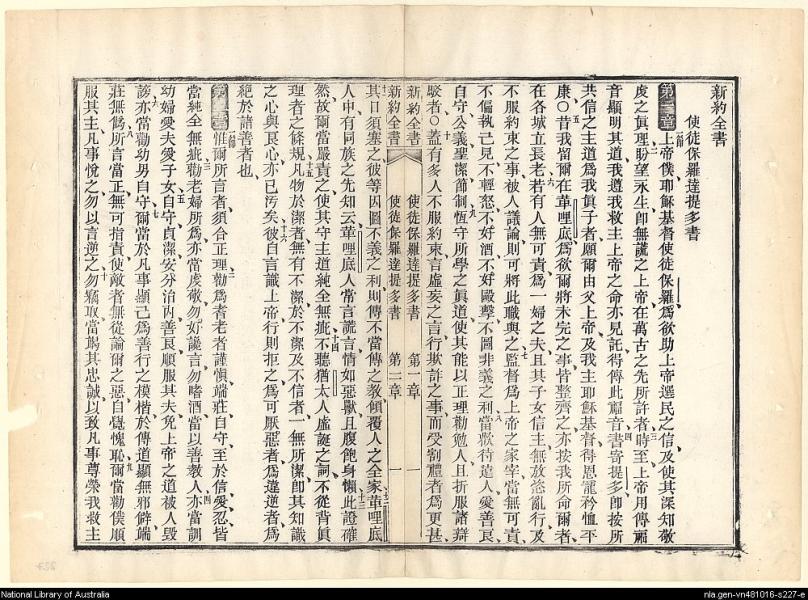 新約全書
使徒保羅達提多書
第一章 一節 上帝僕耶穌基督使徒保羅爲欲助上帝選民之信及使其深知敬
虔之眞理二盼望永生卽無謊之上帝在萬古之先所許者三時至上帝用傳福
音顯明其道我遵我救主上帝之命亦見託得傳此福音四書寄提多卽按所
共信之主道爲我眞子者願爾由父上帝及我主耶穌基督得恩寵矜恤平
康〇五昔我留爾在革哩底爲欲爾將未完之事皆整齊之亦按我所命爾者
在各城立長老六若有人無可責爲一婦之夫且其子女信主無放恣亂行及
不服約束之事被人議論則可將此職與之七監督爲上帝之家宰當無可責
不偏執己見不輕怒不好酒不好毆擊不圖非義之利八當欵待遠人愛善良
自守公義聖潔節制九恆守所學之眞道使其能以正理勸勉人且折服諸辯
駁者〇十蓋有多人不服約束言虛妄之言行欺詐之事而受割禮者爲更甚
新約全書 使徒保羅達提多書 第一章 一
新約全書 使徒保羅達提多書 第二章 一
其口須塞之彼等因圖不義之利則傳不當傳之教傾覆人之全家十二革哩底
人中有同族之先知云革哩底人常言謊言情如惡獸且腹飽身懶十三此證確
然故爾當嚴責之使其守主道純全無疵十四不聽猶太人虛誕之詞不從背眞
理者之條規十五凡物於潔者無有不潔於不潔及不信者一無所潔卽其知識
之心與良心亦已污矣十六彼自言識上帝行則拒之爲可厭惡者爲違逆者爲
絕於諸善者也
第二章 一節 惟爾所言者須合正理二勸爲者老者謹愼端莊自守至於信愛忍皆
當純全無疵三勸老婦所爲亦當虔敬勿好讒言勿嗜酒當以善教人四亦當訓
幼婦愛夫愛子女五自守貞潔安分治內善良順服其夫免上帝之道被人毀
謗六亦當勸幼男自守七爾當於凡事顯己爲善行之模楷於傳道顯無邪僻端
莊無僞八所言當正無可指責使敵者無從論爾之惡自覺愧恥九爾當勸僕順
服其主凡事悅之勿以言逆之十勿竊取當竭其忠誠以致凡事尊榮我救主
National Library of Australia
nla.gen-vn481016-s227-e